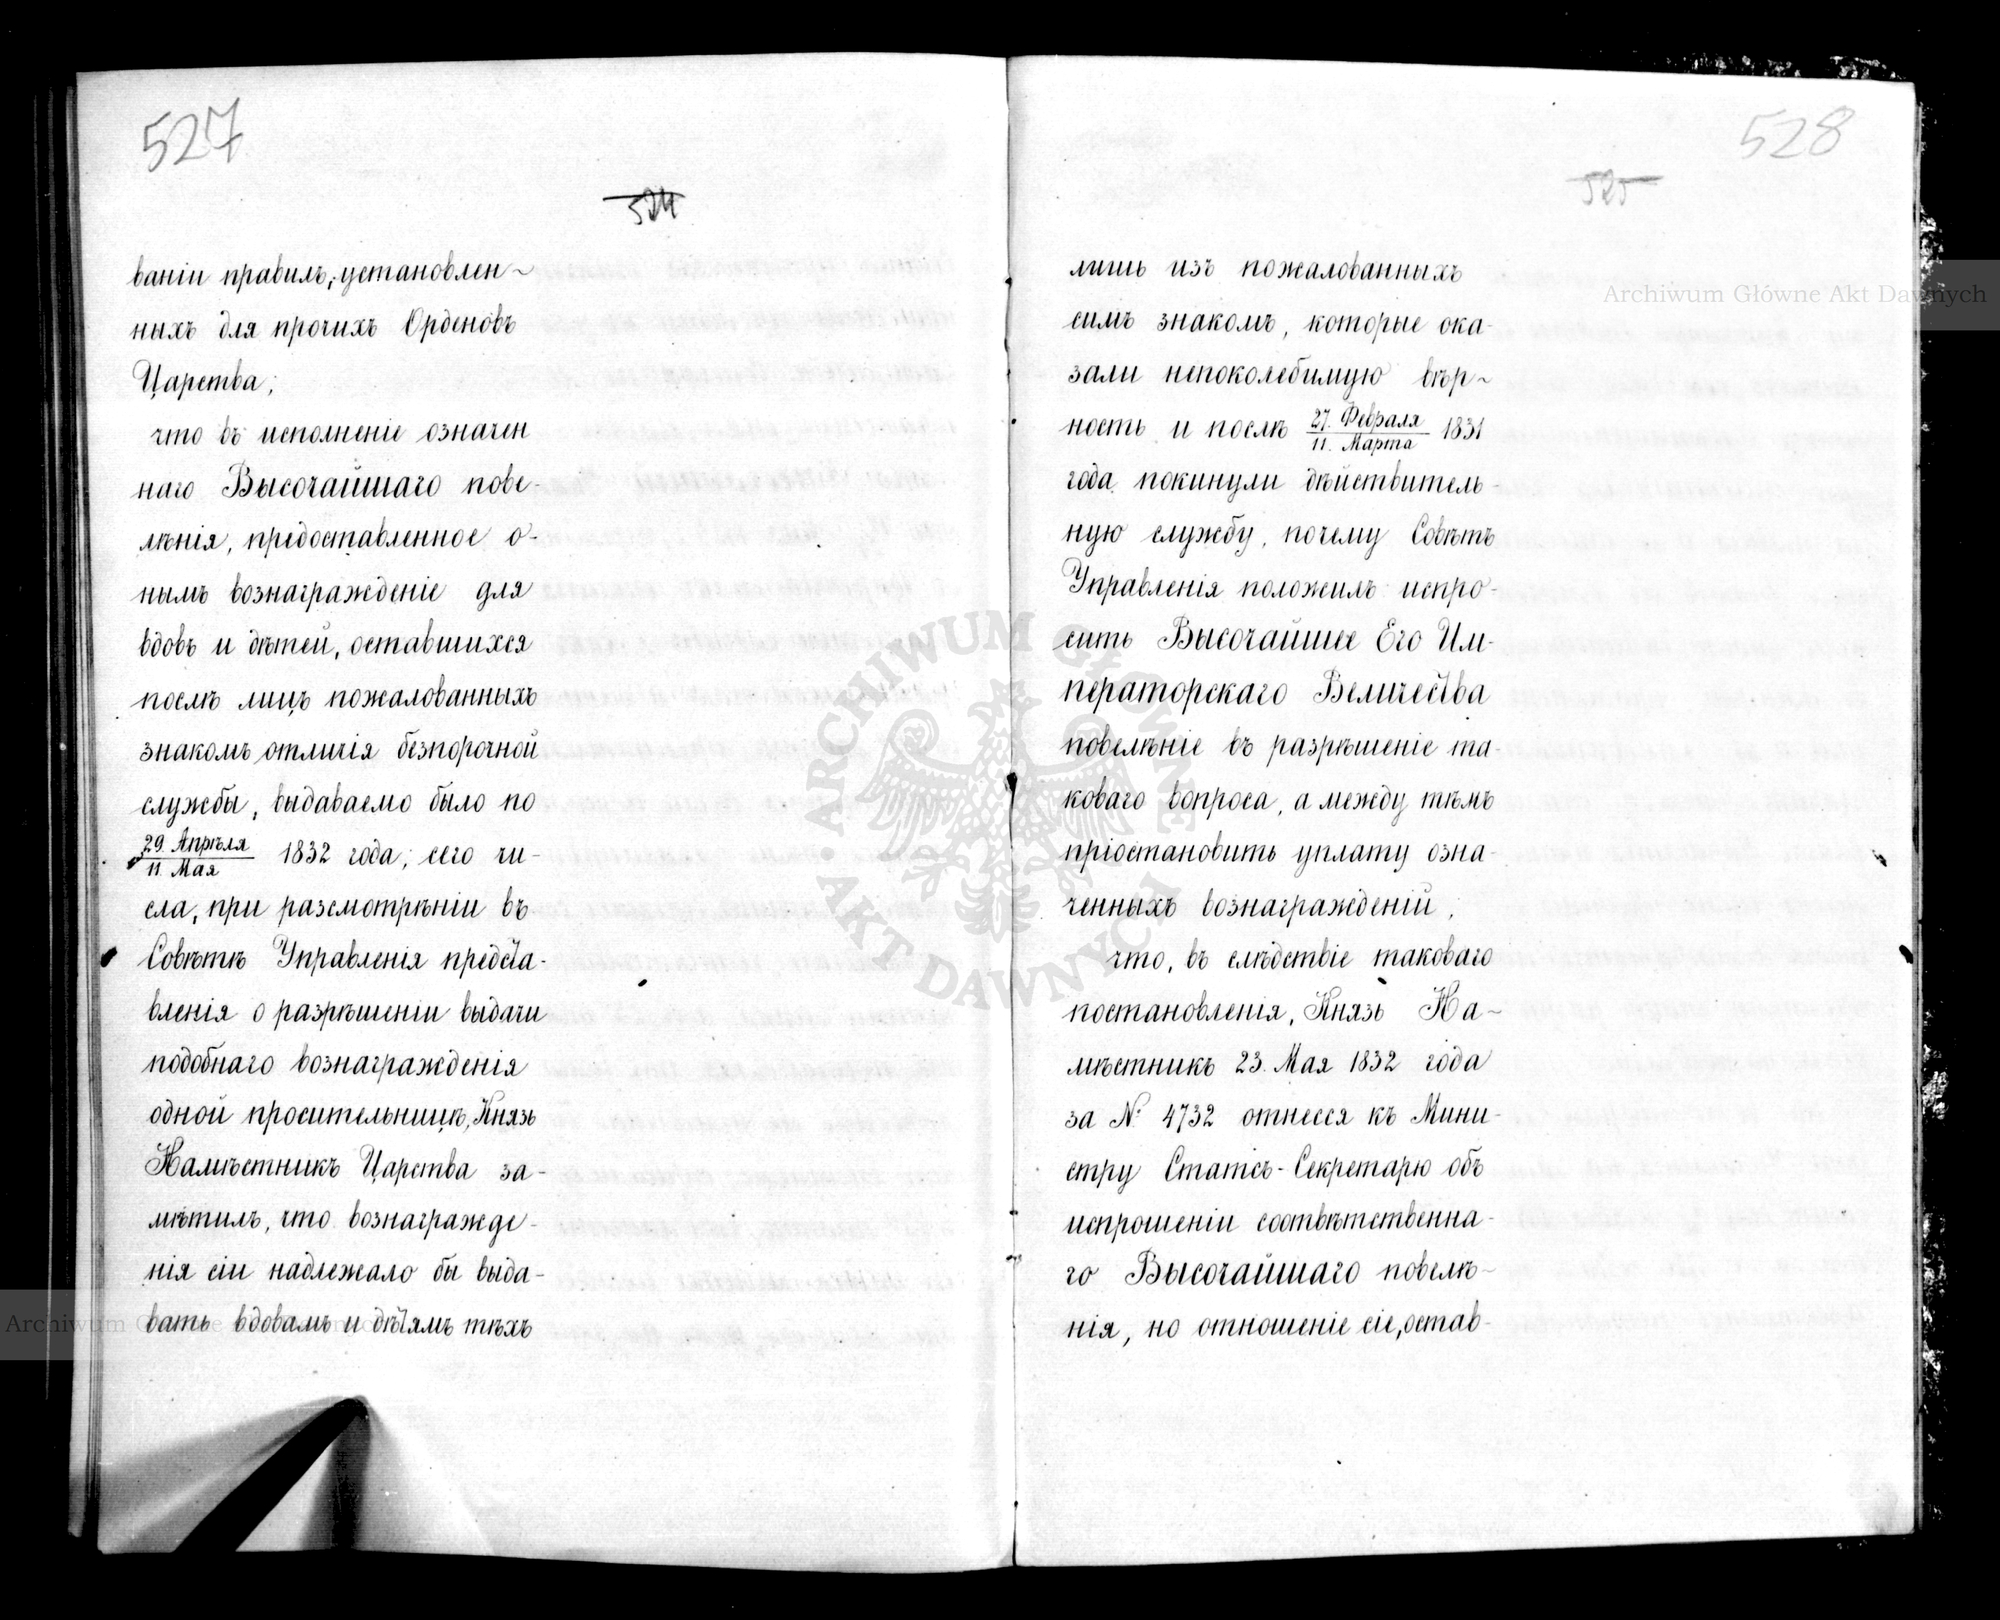 527
524
ваніи правилъ, установлен~
ныхъ для прочихъ Орденовъ
Царства;
что въ исполненіе означен
наго Высочайшаго пове-
лѣнія, предоставленное о-
нымъ вознагражденіе для
вдовъ и дѣтей, оставшихся
послѣ лицъ пожалованныхъ
знакомъ отличія безпорочной
службы, выдаваемо было по
29. Апрѣля
11. Мая
1832 года; сего чи-
сла, при разсмотрѣніи въ
Совѣтѣ Управленія предста-
вленія о разрѣшеніи выдачи
подобнаго вознагражденія
одной просительницѣ, Князь
Намѣстникъ Царства за-
мѣтилъ, что вознагражде-
нія сіи надлежало бы выда-
вать вдовамъ и дѣтямъ тѣхъ
528
525
лишь изъ пожалованныхъ
симъ знакомъ, которые ока-
зали непоколебимую вѣр~
ность и послѣ 27. Февраля 1831
11. Марта
года покинули дѣйствитель-
ную службу, почему Совѣтъ
Управленія положилъ испро-
сить Высочайшее Его Им-
ператорскаго Величества
повелѣніе въ разрѣшеніе та-
коваго вопроса, а между тѣмъ
пріостановить уплату озна-
ченныхъ вознагражденій,
что, въ слѣдствіе таковаго
постановленія, Князь На~
мѣстникъ 23. Мая 1832 года
за № 4732 отнесся къ Мини-
стру Статсъ-Секретарю объ
испрошеніи соотвѣтственна-
го Высочайшаго повелѣ~
нія, но отношеніе сіе, остав-
Archiwum Główne Akt Dawnych
ARCHIWUM GŁÓWNE AKT DAWNYCH